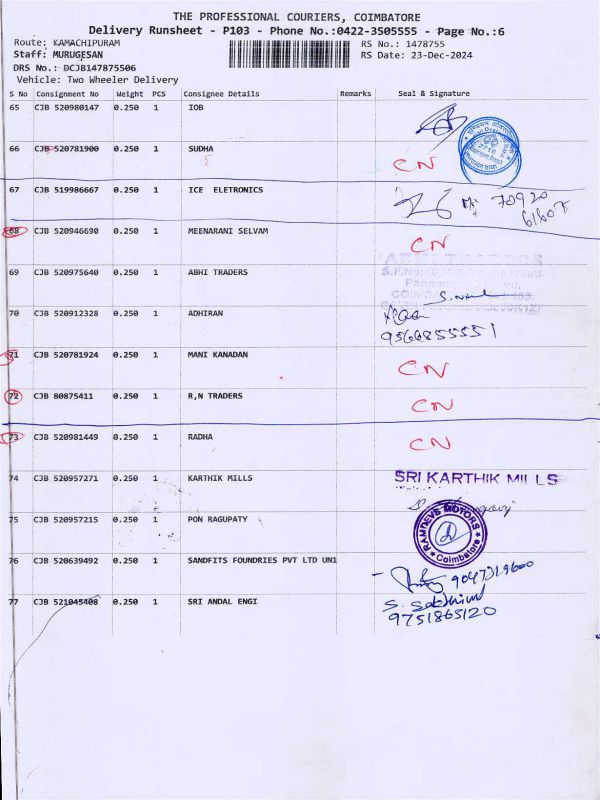 THE PROFESSIONAL COURIERS, COIMBATORE
Delivery Runsheet - P103 - Phone No.:0422-3505555 - Page No.:6
Route: KAMACHIPURAM RS No.: 1478755
Staff: MURUGESAN RS Date: 23-Dec-2024
DRS No.: DCJB147875506
Vehicle: Two Wheeler Delivery
S No Consignment No Weight PCS Consignee Details Remarks Seal & Signature
65 CJB 520980147 0.250 1 IOB
66 CJB 520781900 0.250 1 SUDHA CN
67 CJB 519986667 0.250 1 ICE ELETRONICS
68 CJB 520946690 0.250 1 MEENARANI SELVAM CN
69 CJB 520975640 0.250 1 ABHI TRADERS
70 CJB 520912328 0.250 1 ADHIRAN
9566855551
71 CJB 520781924 0.250 1 MANI KANADAN CN
72 CJB 80875411 0.250 1 R,N TRADERS CN
73 CJB 520981449 0.250 1 RADHA CN
74 CJB 520957271 0.250 1 KARTHIK MILLS SRI KARTHIK MILLS
75 CJB 520957215 0.250 1 PON RAGUPATY RAMDEVS MOTORS Coimbatore
76 CJB 520639492 0.250 1 SANDFITS FOUNDRIES PVT LTD UN1
9047319600
77 CJB 521045408 0.250 1 SRI ANDAL ENGI
9751865120